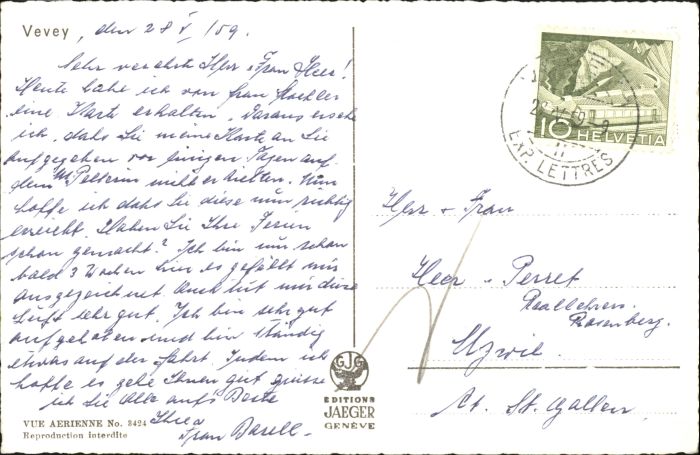 Vevey, den 28 V/59.
Sehr verehrte Herr & Frau Heer!
Heute habe ich von Frau
eine Karte erhalten. Daraus ersehe
ich, dass Sie meine Karte an Sie
aufgegeben vor einigen Tagen auf
dem Mt Pelerin nicht erhielten. Nun
hoffe ich dass Sie diese nun richtig
erreicht. Haben Sie Ihre Ferien
schon gemacht? Ich bin nun schon
bald 3 Wochen hier es gefällt mir
ausgezeichnet. Auch tut mir diese
Luft sehr gut. Ich bin sehr gut
aufgehoben und bin ständig
etwas auf der Fahrt. Indem ich
hoffe es gehe Ihnen gut grüsse
ich Sie Alle aufs Beste
Ihre
Frau
VUE AERIENNE No. 8424
Reproduction interdite
GJG
EDITIONS
JAEGER
GENÈVE
10 HELVETIA
EXP. LETTRES
Herr & Frau
Heer - Perret
Reallehrer.
Rosenberg.
Uzwil.
Kt. St. Gallen